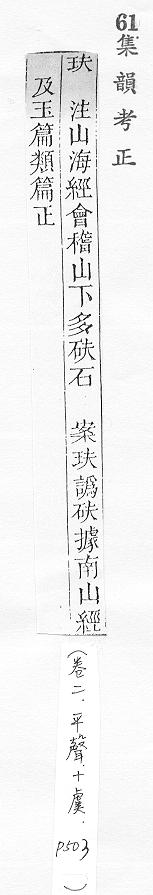 61集韻考正
玞　注山海經會稽山下多砆石　案玞譌砆據南山經
及玉篇類篇正
(卷二．平聲．十虞．P503)